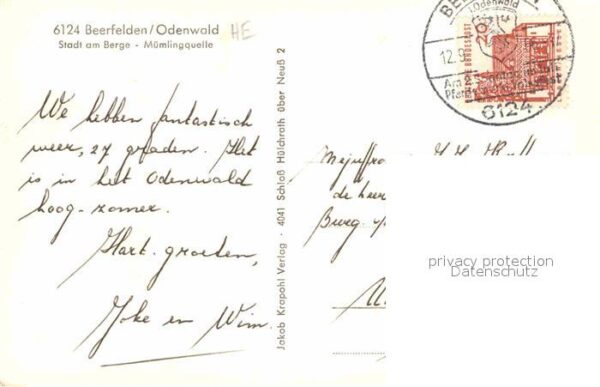 6124 Beerfelden/Odenwald
Stadt am Berge - Mümlingquelle
HE
We hebben fantastisch
weer, 27 graden. Het
is in het Odenwald
hoog-zomer.
Hart. groeten,
Joke en Wim.
Jakob Krapohl Verlag · 4041 Schloß Hülchrath über Neuß 2
Odenwald
12.9
20
6124
Mejuffro
de heer
Burg.
privacy protection
Datenschutz